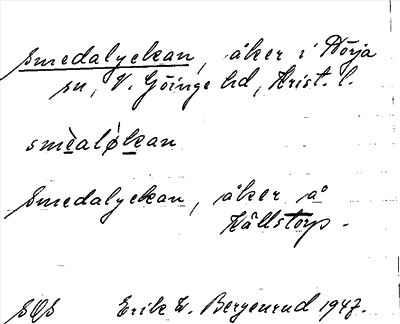 Smedalyckan, åker i Nörja
sn, V. Göinge hd, Krist. l.
smèaløkan
Smedalyckan, åker å
Källstorp.
SOS Erik W. Bergenrud 1947.